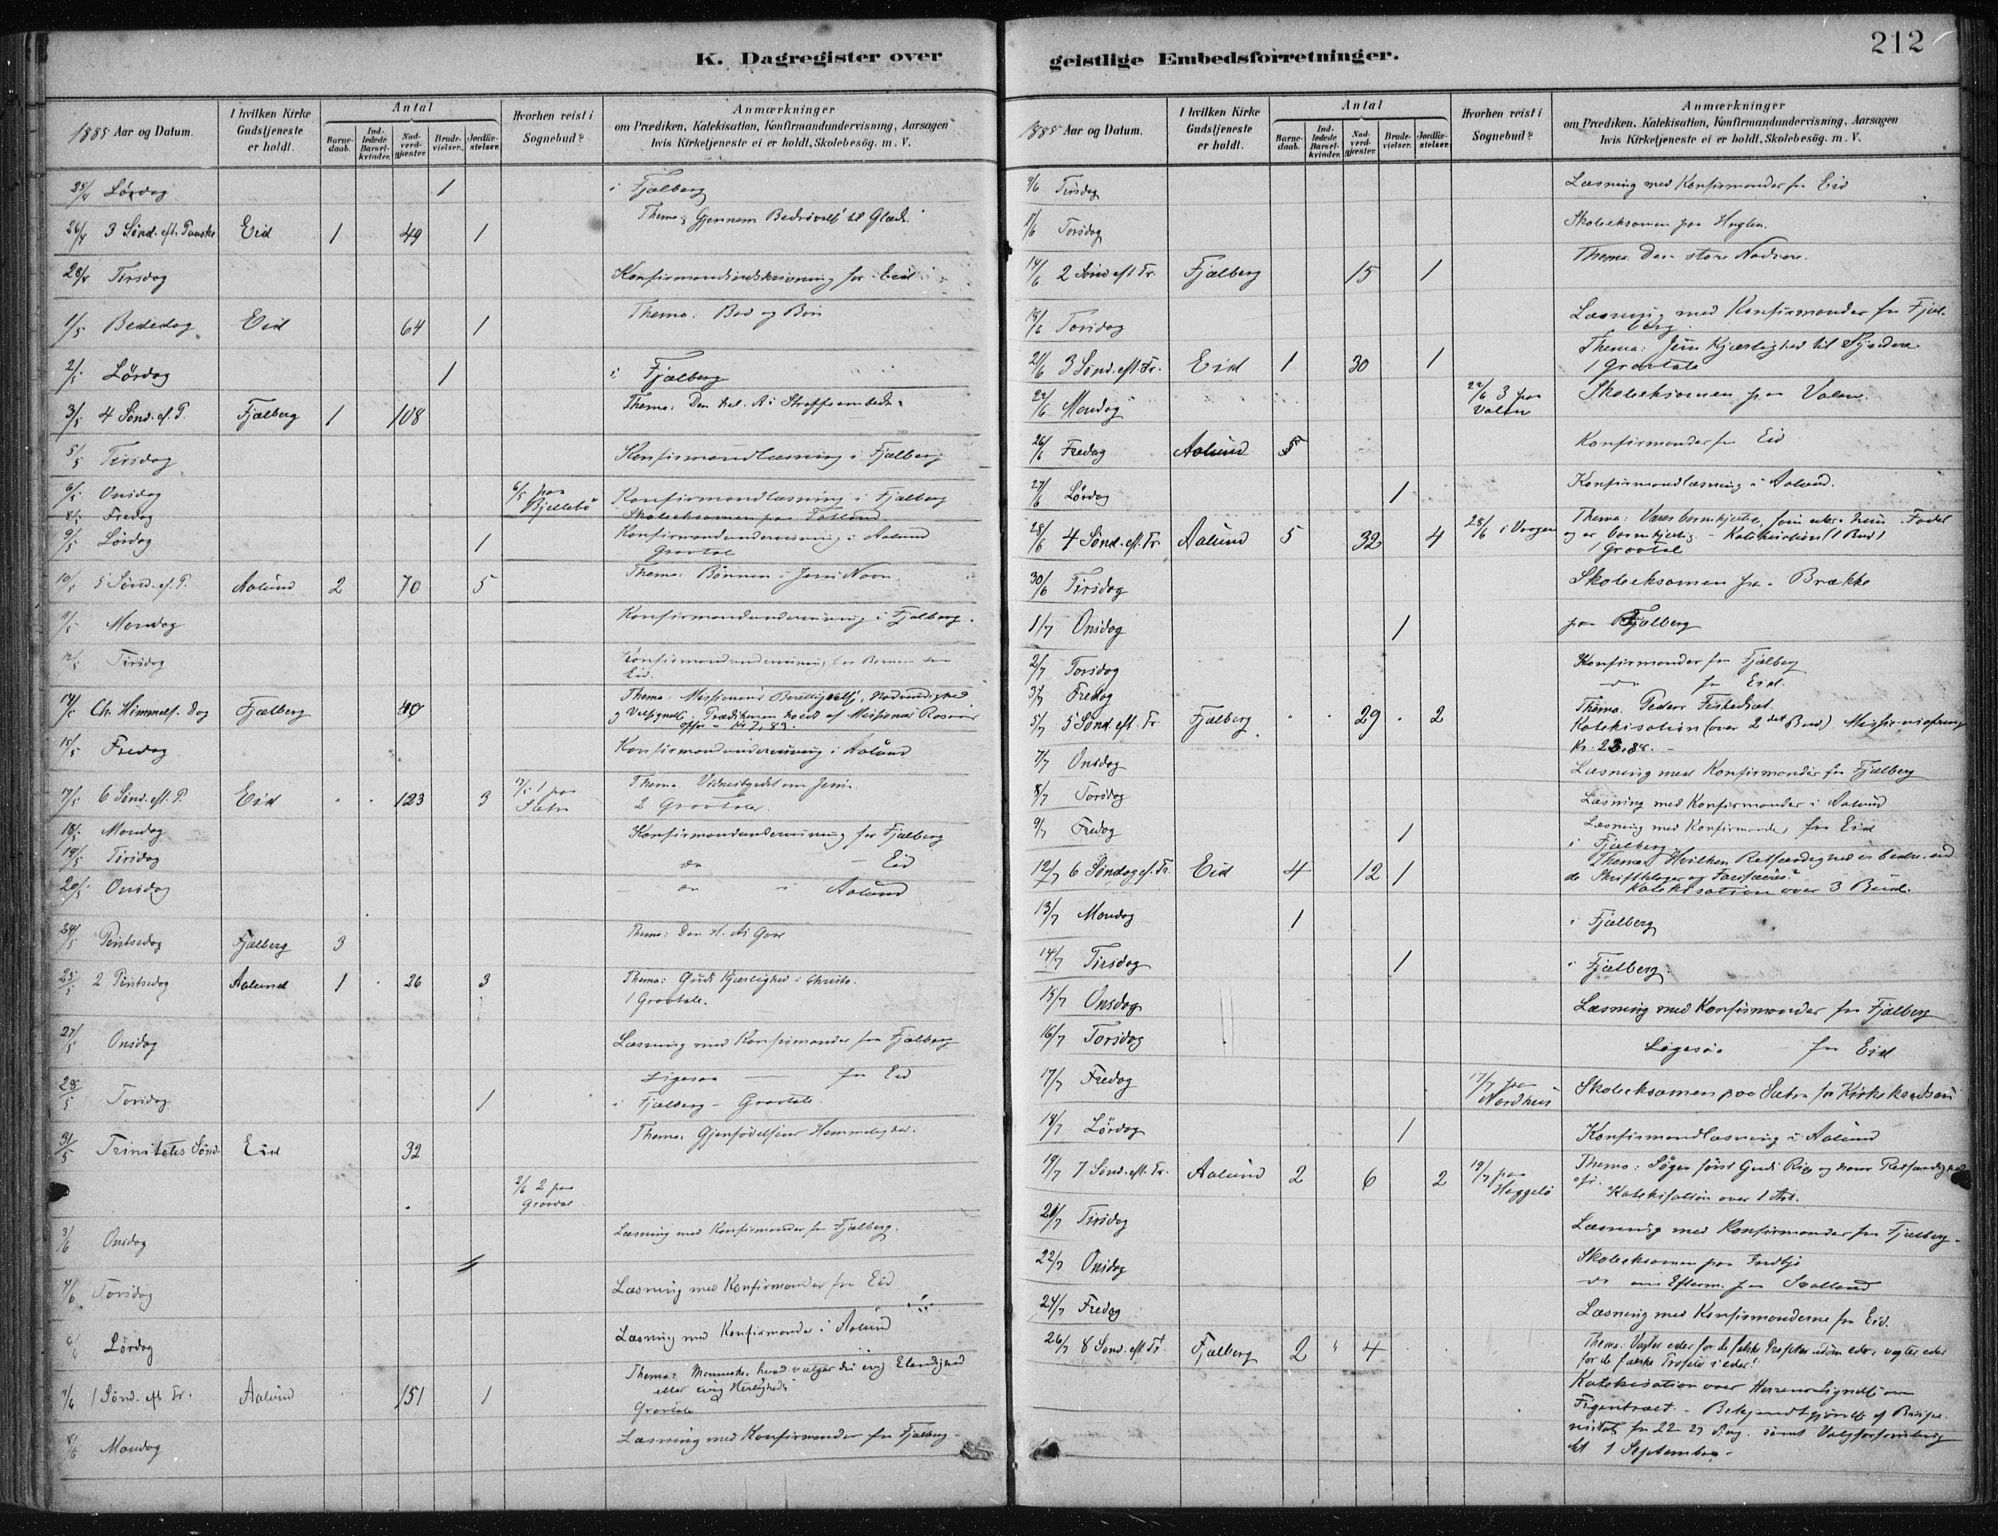 K. Dagregister over
1885 Aar og Datum.
I hvilken Kirke Gudstjeneste er holdt.
Antal
Barnedaab.
Indledede Barselkvinder.
Nadverdgjæster.
Brudevielser.
Jordfæstelser.
Hvorhen reist i Sognebud?
Anmærkninger
om Prædiken, Katekisation, Konfirmandundervisning, Aarsagen
hvis Kirketjeneste ei er holdt, Skolebesøg. m. V.
25/4 Lördag 1 i Fjælberg
26/4 3 Sönd. eft. Paaske Eid 1 49 1 Thema: Gjennem Bedrövelse til Glæde.
28/4 Tirsdag Konfirmandindskrivning for Eid
1/5 Bededag Eid 64 1 Thema: Bod og Bön
2/5 Lördag 1 i Fjælberg
3/5 4 Sönd. ef. P. Fjælberg 1 108 Thema: Den hel. A's Straffeembede.
5/5 Tirsdag Konfirmandlæsning i Fjælberg
6/5 Onsdag 6/5 paa Bjellebö Konfirmandlæsning i Fjælberg
8/5 Fredag Skoleeksamen paa
9/5 Lördag 1 Konfirmandundervisning i Aalund
Gravtale
10/5 5 Sönd. ef. P. Aalund 2 70 5 Thema: Bönnen i Jesu Navn
11/5 Mandag Konfirmandundervisning i Fjælberg.
12/5 Tirsdag Konfirmandundervisning for Börnene fra
Eid.
14/5 Ch. Himmelf. Dag Fjælberg 40 Thema: Missionens Berettigelse, Nödvendighed
og Velsignelse. Prædikenen holdt af Missionær
15/5 Fredag Konfirmandundervisning i Aalund
17/5 6 Sönd. eft. P. Eid 123 3 17/5 1 paa Sætre Thema Vidnesbyrdet om Jesu
2 Gravtaler.
18/5 Mandag Konfirmandundervisning for Fjælberg
19/5 Tirsdag do — Eid
20/5 Onsdag do i Aalund
24/5 Pintsedag Fjælberg 3 Thema: Den H. A's Gave
25/5 2 Pintsedag Aalund 1 26 3 Thema: Guds Kjærlighed i Christo.
1 Gravtale.
27/5 Onsdag Læsning med Konfirmander fra Fjælberg
Ligesaa — fra Eid
28/5 Torsdag 1 i Fjælberg – Gravtale.
31/5 Trinitatis Sönd. Eid 32 Thema: Gjenfödelsens Hemmelighed.
2/6 2 paa
3/6 Onsdag Læsning med Konfirmander fra Fjælberg.
4/6 Torsdag Læsning med Konfirmander fra Eid
6/6 Lördag Læsning med Konfirmander i Aalund
7/6 1 Sönd. eft Tr. Aalund 151 1 Thema: Menneske, hvad vælger du evig Elendighed
eller evig Herlighed?
Gravtale
8/6 Mandag Læsning med Konfirmander fra Fjælberg.
geistlige Embedsforretninger.
212
1885 Aar og Datum.
I hvilken Kirke Gudstjeneste er holdt.
Antal
Barnedaab.
Indledede Barselkvinder.
Nadverdgjæster.
Brudevielser.
Jordfæstelser.
Hvorhen reist i Sognebud?
Anmærkninger
om Prædiken, Katekisation, Konfirmandundervisning, Aarsagen
hvis Kirketjeneste ei er holdt, Skolebesøg. m. V.
9/6 Tirsdag Læsning med Konfirmander fra Eid
11/6 Torsdag Skoleeksamen paa
14/6 2 Sönd eft Tr. Fjælberg 15 1 Thema: Den store Nadvere.
18/6 Torsdag Læsning med Konfirmander fra Fjælberg
21/6 3 Sönd. eft. Tr. Eid 1 30 1 Thema: Jesu Kjærlighed til Syndere
1 Gravtale
22/6 Mandag 22/6 3 paa Valen Skoleeksamen paa Valen.
26/6 Fredag Aalund 5 Konfirmander fra Eid
27/6 Lördag 1 Konfirmandlæsning i Aalund.
28/6 4 Sönd. eft. Tr. Aalund 5 32 4 28/6 i Vaagen Thema: Værer barmhjertige, som eders him. Fader
og er barmhjertig – Katekisation (1 Bud)
1 Gravtale
30/6 Tirsdag Skoleeksamen paa Brække
1/7 Onsdag 1 paa Fjælberg
2/7 Torsdag Konfirmander fra Fjælberg
3/7 Fredag — fra Eid
5/7 5 Sönd. eft. Tr. Fjælberg 29 2 Thema. Peders Fiskedræt.
Katekisation (over 2det Bud). Missionsoffring
Kr. 23,88.
7/7 Onsdag Læsning med Konfirmander fra Fjælberg
8/7 Torsdag Læsning med Konfirmander i Aalund
9/7 Fredag 1 Læsning med Konfirmander fra Eid
i Fjælberg
12/7 6 Söndag ef. Tr. Eid 4 12 1 Thema: Hvilken Retfærdighed er bedre end
de Skriftkloges og Farisæeres?
Katekisation over 3 Bud.
13/7 Mandag 1 i Fjælberg
14/7 Tirsdag 1 i Fjælberg.
15/7 Onsdag Læsning med Konfirmander fra Fjælberg
16/7 Torsdag Ligesaa fra Eid
17/7 Fredag 17/7 paa Nordhus Skoleeksamen paa Sætre for
18/7 Lördag 1 Konfirmandlæsning i Aalund
19/7 7 Sönd. eft. Tr. Aalund 2 6 2 19/7 paa Thema: Söger först Guds Rige og hans Retfærdighed
Katekisation over 1 Art.
21/7 Tirsdag Læsning med Konfirmander fra Fjælberg.
22/7 Onsdag Skoleeksamen paa
do om Efterm. paa
24/7 Fredag Læsning med Konfirmanderne fra Eid.
26/7 8 Sönd. eft Tr. Fjælberg 2 " 4 Thema: Vogter eder for de falske Profeter udom eder, vogter eder
for de falske Profeter i eder!
Katekisation over Herrens Lignelse om
Figentræet. – Bekjendtgjörelse af Bispevisitats
fra 22–27 Aug. samt Valgforsamling
det 1 September.